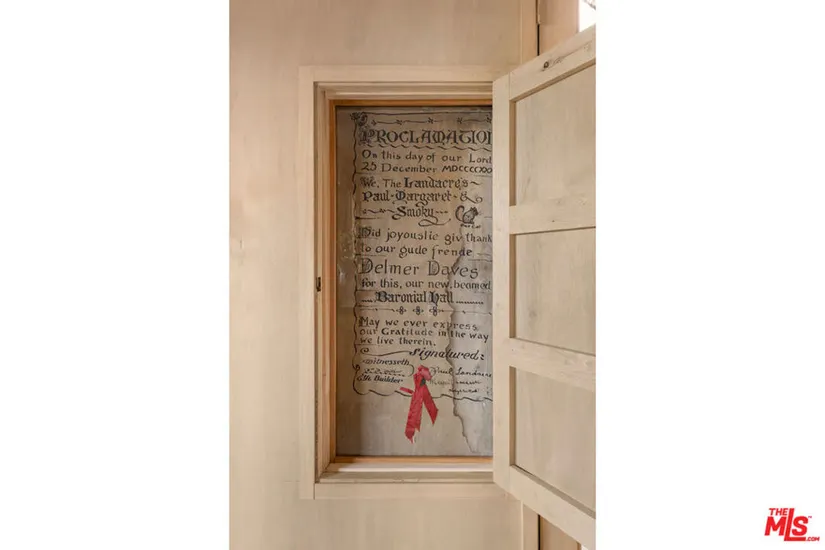 PROCLAMATION
On this day of our Lord
25 December MDCCCC
We, The Landacres~
Paul-Margaret-&
~Smoky~
Did joyouslie giv thank
to our gude frende
Delmer Daves
for this, our new, beamed
Baronial Hall
May we ever express
our Gratitude in the way
we live therein.
Signatured:
Witnesseth
Ye Builder
Paul Landacre
THE
MLS
.COM